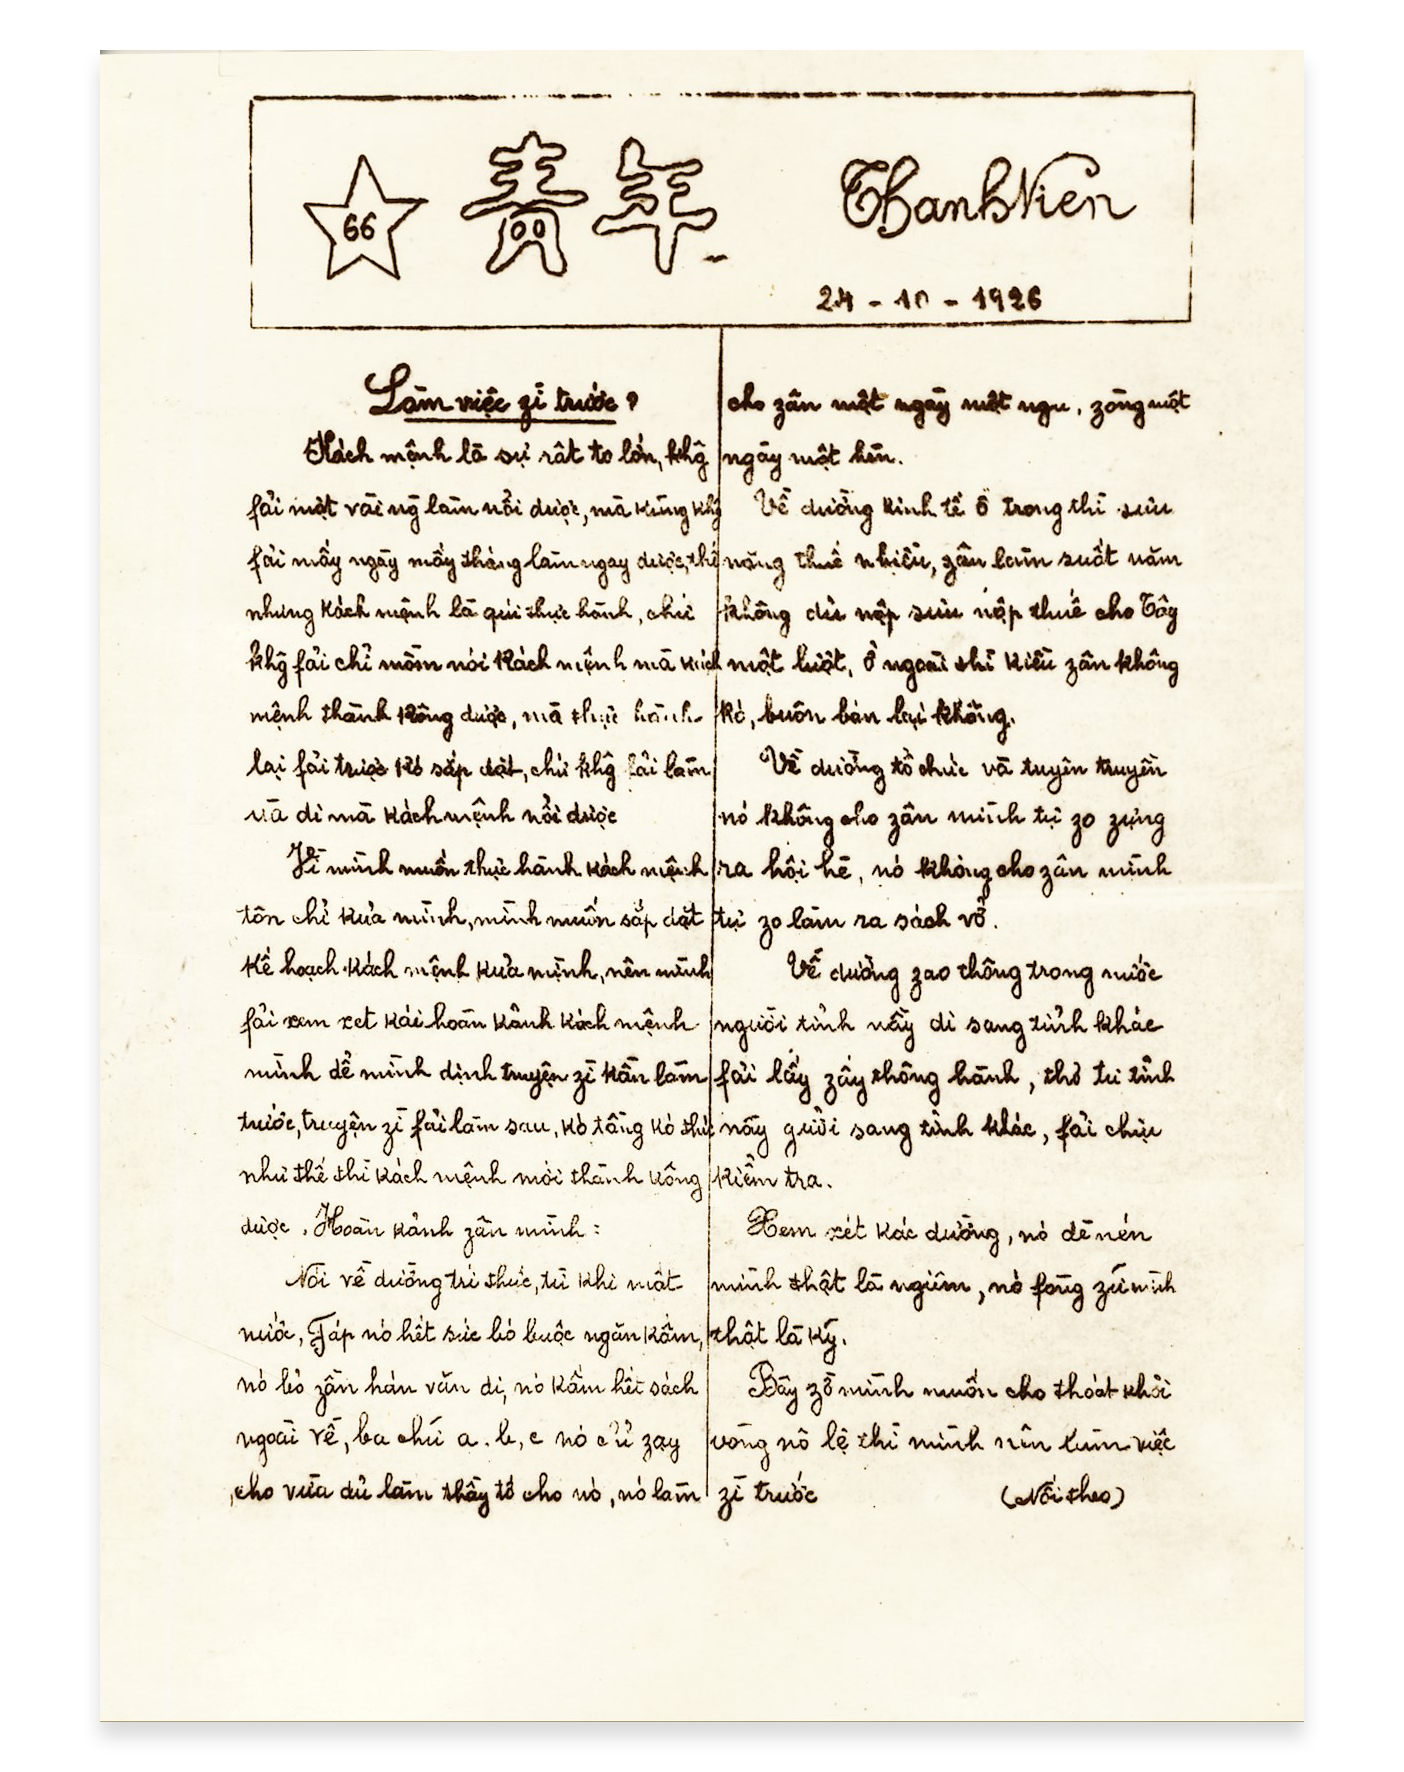 66 青年 Thanh Niên
24 - 10 - 1926
Làm việc zì trước?
Kách mệnh là sự rất to lớn, khg̃
fải một vài ng̃ làm nổi được, mà kũng khg̃
fải mấy ngày mấy tháng làm ngay được, thế
nhưng kách mệnh là qúi thực hành, chứ
khg̃ fải chỉ mồm nói kách mệnh mà kách
mệnh thành kông được, mà thực hành
lại fải trước kó sắp dặt, chứ khg̃ fải làm
và di mà kách mệnh nổi dược
Vì mình muốn thực hành kách mệnh
tôn chỉ kủa mình, mình muốn sắp dặt
kế hoạch kách mệnh kủa mình, nên mình
fải xem xét kái hoàn kảnh kách mệnh
mình dể mình dịnh truyện zì kần làm
trước, truyện zì fải làm sau, kó tầng kó thứ
như thế thì kách mệnh mới thành kông
dược. Hoàn kảnh zân mình:
Nói về dường trí thức, từ khi mất
nước, Fáp nó hết sức bó buộc ngăn kấm,
nó bỏ zân hán văn di, nó kấm hết sách
ngoài về, ba chữ a. b, c nó chỉ zạy
cho vừa dủ làm thầy tớ cho nó, nó làm
cho zân một ngày một ngu, zòng một
ngày một hèn.
Về dường kinh tế ở trong thì sưu
nặng thuế nhiều, zân làm suốt năm
không dủ nộp sưu nộp thuế cho Tây
một lượt, ở ngoài thì kiều zân không
kó, buôn bán lại không.
Về dường tổ chức và tuyên truyền
nó không cho zân mình tự zo zựng
ra hội hè, nó không cho zân mình
tự zo làm ra sách vở.
Về dường zao thông trong nước
người tỉnh nầy di sang tỉnh khác
fải lấy zấy thông hành, thơ từ tỉnh
nầy gưởi sang tỉnh khác, fải chịu
kiểm tra.
Xem xét kác dường, nó dè nén
mình thật là ngiêm, nó fòng zữ mình
thật là kỹ.
Bây zờ mình muốn cho thoát khỏi
vòng nô lệ thì mình nên làm việc
zì trước (Nối theo)